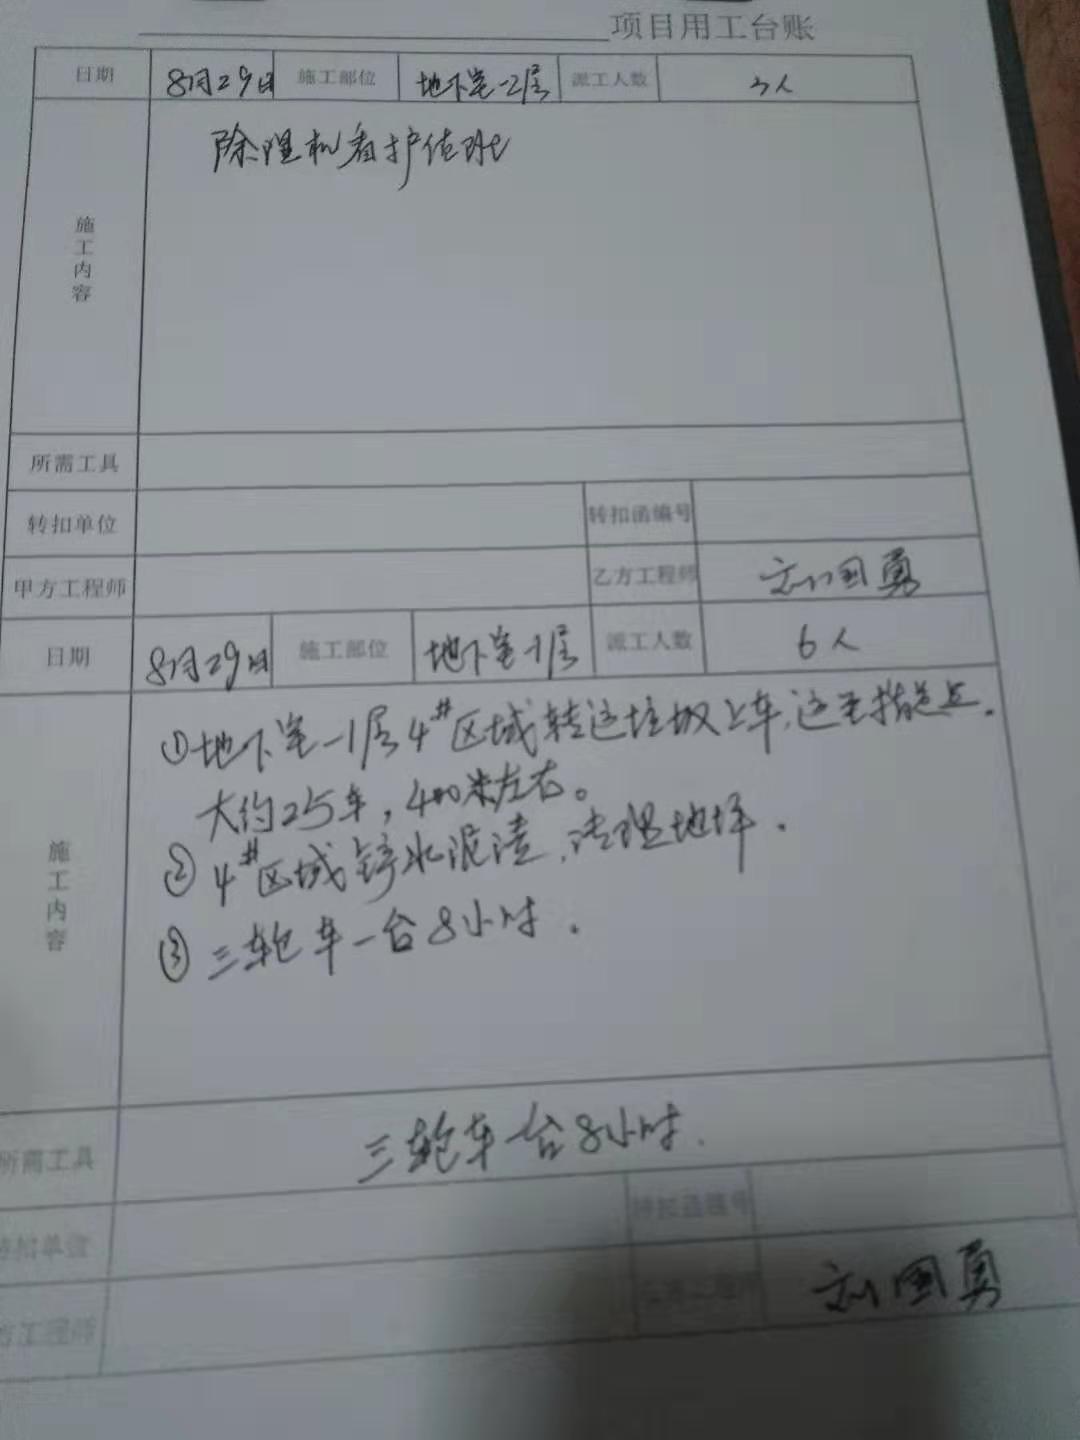 项目用工台账
日期 8月29日 施工部位 地下室-2层 派工人数 3人
施工内容
除湿机看护值班
所需工具
转扣单位 转扣函编号
甲方工程师 乙方工程师 刘国勇
日期 8月29日 施工部位 地下室-1层 派工人数 6人
施工内容
①地下室-1层4#区域转运垃圾上车,运至指定点.
大约25车,400米左右。
②4#区域铲水泥渣,清理地坪.
③三轮车一台8小时.
所需工具 三轮车一台8小时.
转扣单位 转扣函编号
方工程师 刘国勇